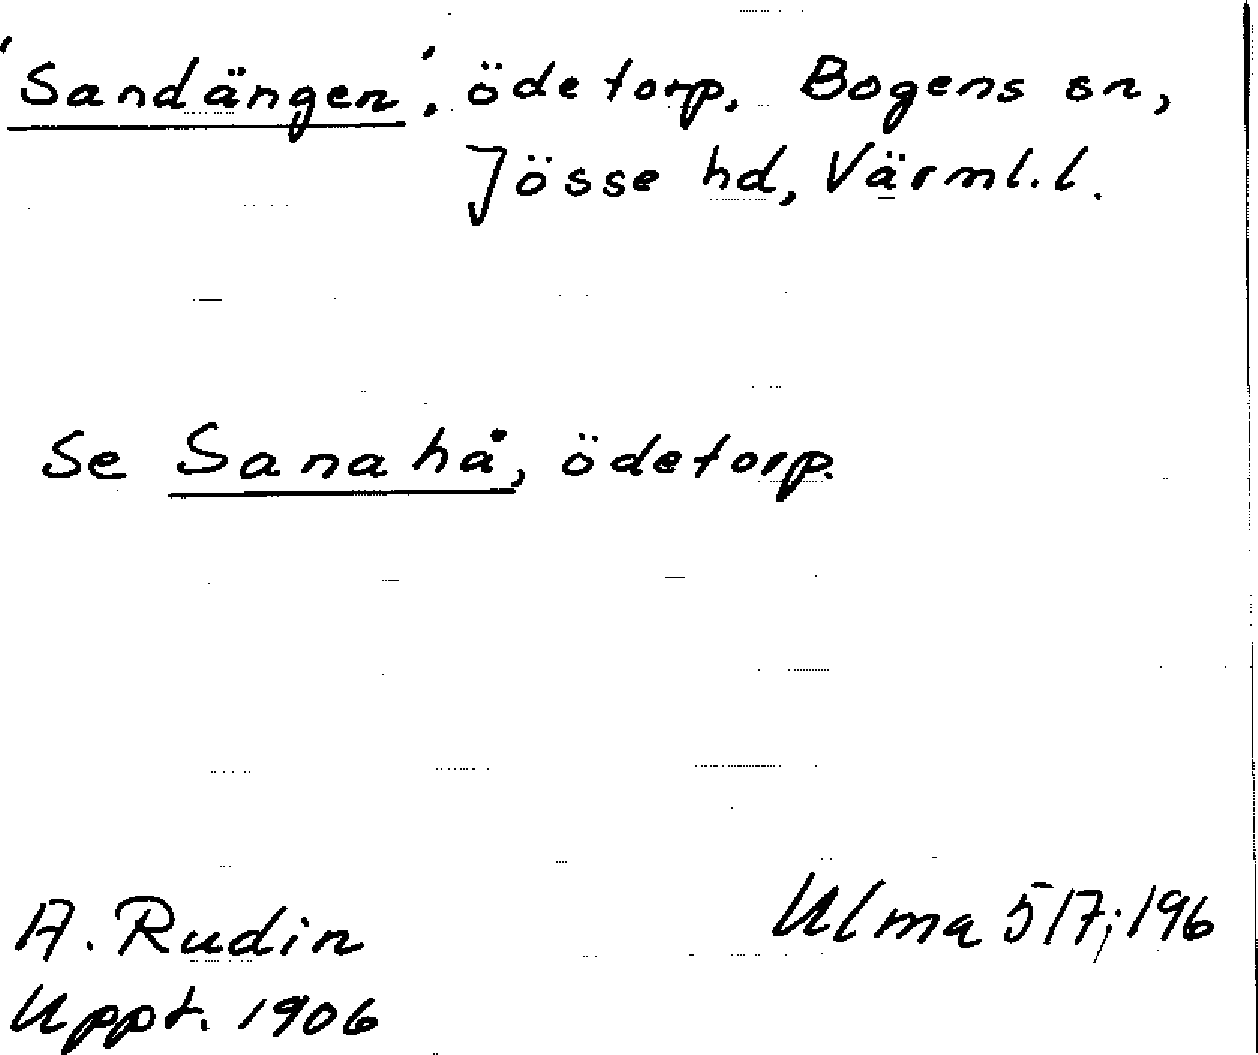 'Sandängen', ödetorp, Bogens sn,
Jösse hd, Värml.l.
Se Sanahå, ödetorp.
A. Rudin
Uppt. 1906
Ulma 517; 196